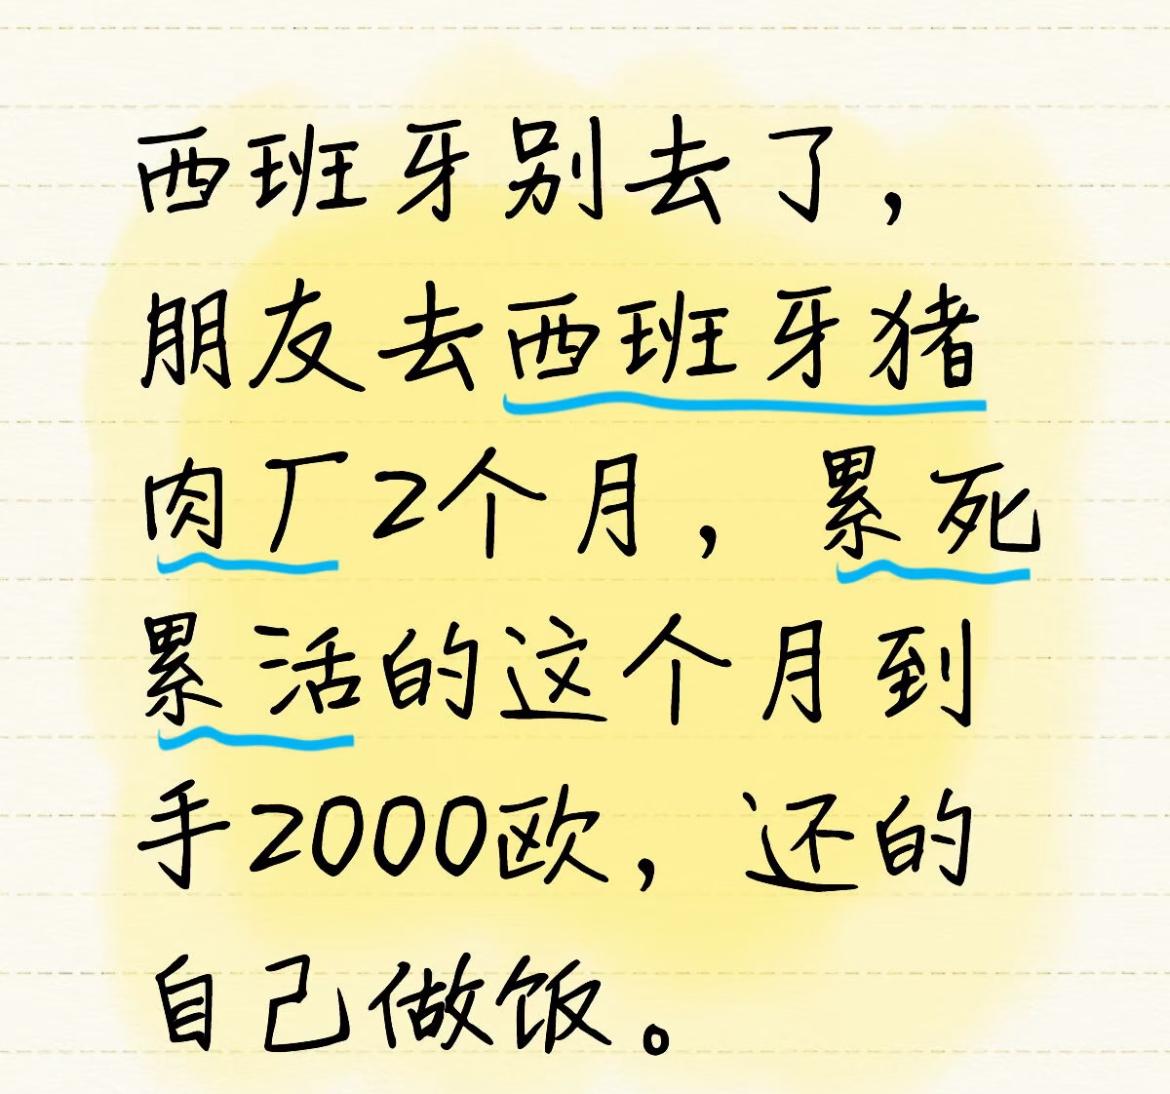 西班牙别去了，
朋友去西班牙猪
肉厂2个月，累死
累活的这个月到
手2000欧，还的
自己做饭。